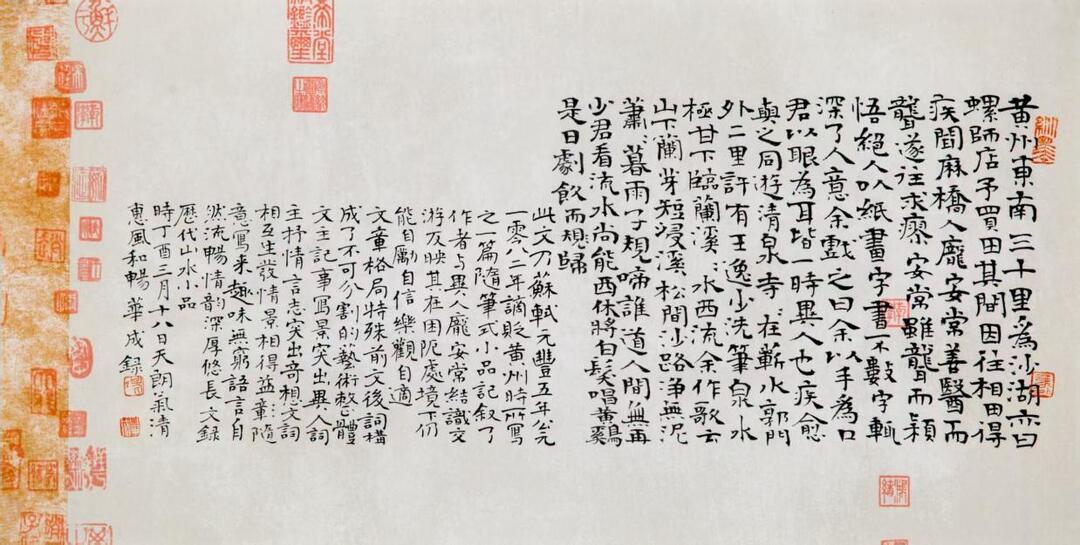 黄州東南三十里爲沙湖亦曰
螺師店予買田其間因往相田得
疾聞麻橋人龐安常善醫而
聾遂往求療安常雖聾而穎
悟絕人以紙畫字書不數字輒
深了人意余戲之曰余以手爲口
君以眼為耳皆一時異人也疾愈
與之同遊清泉寺々在蘄水郭門
外二里許有王逸少洗筆泉水
極甘下臨蘭溪々水西流余作歌云
山下蘭芽短浸溪松間沙路淨無泥
蕭々暮雨子規啼誰道人間無再
少君看流水尚能西休將白髮唱黄鷄
是日劇飲而歸
此文乃蘇軾元豐五年公元
一零八二年謫貶黄州時所寫
之一篇隨筆式小品記叙了
作者与異人龐安常結識交
游反映其在困阨處境下仍
能自勵自信樂觀自適
文章格局特殊前文後詞構
成了不可分割的藝術整體
文主記事寫景突出異人詞
主抒情言志突出奇相文詞
相互生發情景相得益彰隨
意寫來趣味無窮語言自
然流暢情韵深厚悠長文録
歷代山水小品
時丁酉三月十八日天朗氣清
惠風和暢 華成録